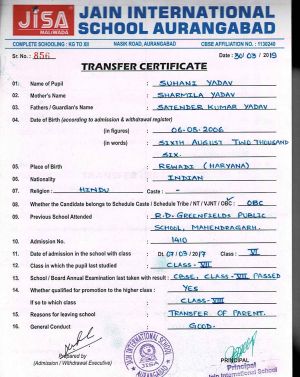 JISA
MALIWADA
JAIN INTERNATIONAL
SCHOOL AURANGABAD
COMPLETE SCHOOLING : KG TO XII NASIK ROAD, AURANGABAD CBSE AFFILIATION NO. : 1130240
Sr. No.: 856 Date : 30/03/2019
TRANSFER CERTIFICATE
01: Name of Pupil : SUHANI YADAV
02: Mother's Name : SHARMILA YADAV
03: Fathers / Guardian's Name : SATENDER KUMAR YADAV
04: Date of Birth (according to admission & withdrawal register)
(in figures) : 06-08-2006
(in words) : SIXTH AUGUST TWO THOUSAND
SIX.
05: Place of Birth : REWADI (HARYANA)
06: Nationality : INDIAN
07: Religion : HINDU Caste : -
08: Whether the Candidate belongs to Schedule Caste / Schedule Tribe / NT / VJNT / OBC : OBC
09: Previous School Attended : R.D. GREENFIELDS PUBLIC
SCHOOL, MAHENDRAGARH.
10: Admission No. : 1410
11: Date of admission in the school with class : Dt. 07/03/2017 Class : VI
12: Class in which the pupil last studied : CLASS-VII
13: School / Board Annual Examination last taken with result : CBSE, CLASS-VII PASSED
14: Whether qualified for promotion to the higher class : YES
If so to which class : CLASS-VIII
15: Reasons for leaving school : TRANSFER OF PARENT.
16: General Conduct : GOOD.
Prepared by
(Admission / Withdrawal Executive)
JAIN INTERNATIONAL SCHOOL
AURANGABAD
PRINCIPAL
Principal
Jain International School